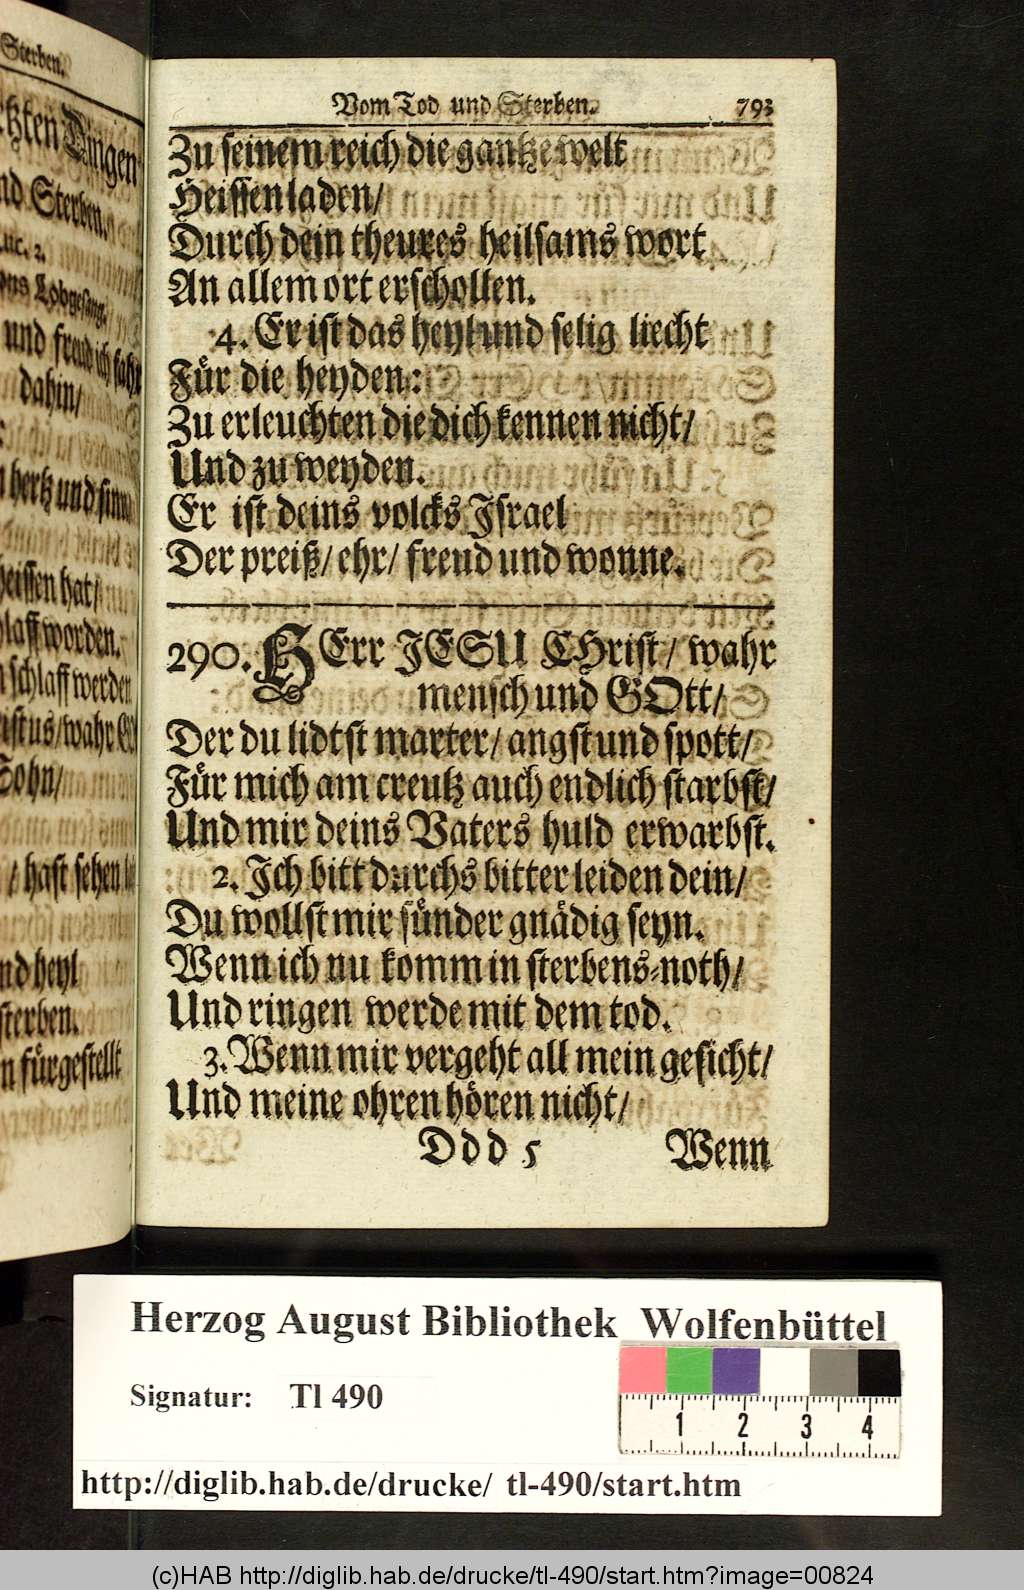 Sterben.
tzten Dingen
nd Sterben.
uc. 2.
ons Lobgesang.
und freud ich fahr
dahin/
hertz und sinn
heissen hat/
laff worden.
schlaff werden
istus/ wahr
Sohn/
/ hast sehen
nd heyl
sterben.
n fürgestellt
Vom Tod und Sterben. 793
Zu seinem reich die gantze welt
Heissen laden/
Durch dein theures heilsams wort
An allem ort erschollen.
4. Er ist das heyl und selig liecht
Für die heyden:
Zu erleuchten die dich kennen nicht/
Und zu weyden.
Er ist deins volcks Israel
Der preiß/ ehr/ freud und wonne.
290. HErr JESU CHrist/ wahr
mensch und GOtt/
Der du lidtst marter/ angst und spott/
Für mich am creutz auch endlich starbst/
Und mir deins Vaters huld erwarbst.
2. Ich bitt durchs bitter leiden dein/
Du wollst mir sünder gnädig seyn.
Wenn ich nu komm in sterbens-noth/
Und ringen werde mit dem tod.
3. Wenn mir vergeht all mein gesicht/
Und meine ohren hören nicht/
Ddd 5 Wenn
Herzog August Bibliothek Wolfenbüttel
Signatur: Tl 490
1 2 3 4
http://diglib.hab.de/drucke/ tl-490/start.htm
(c)HAB http://diglib.hab.de/drucke/tl-490/start.htm?image=00824